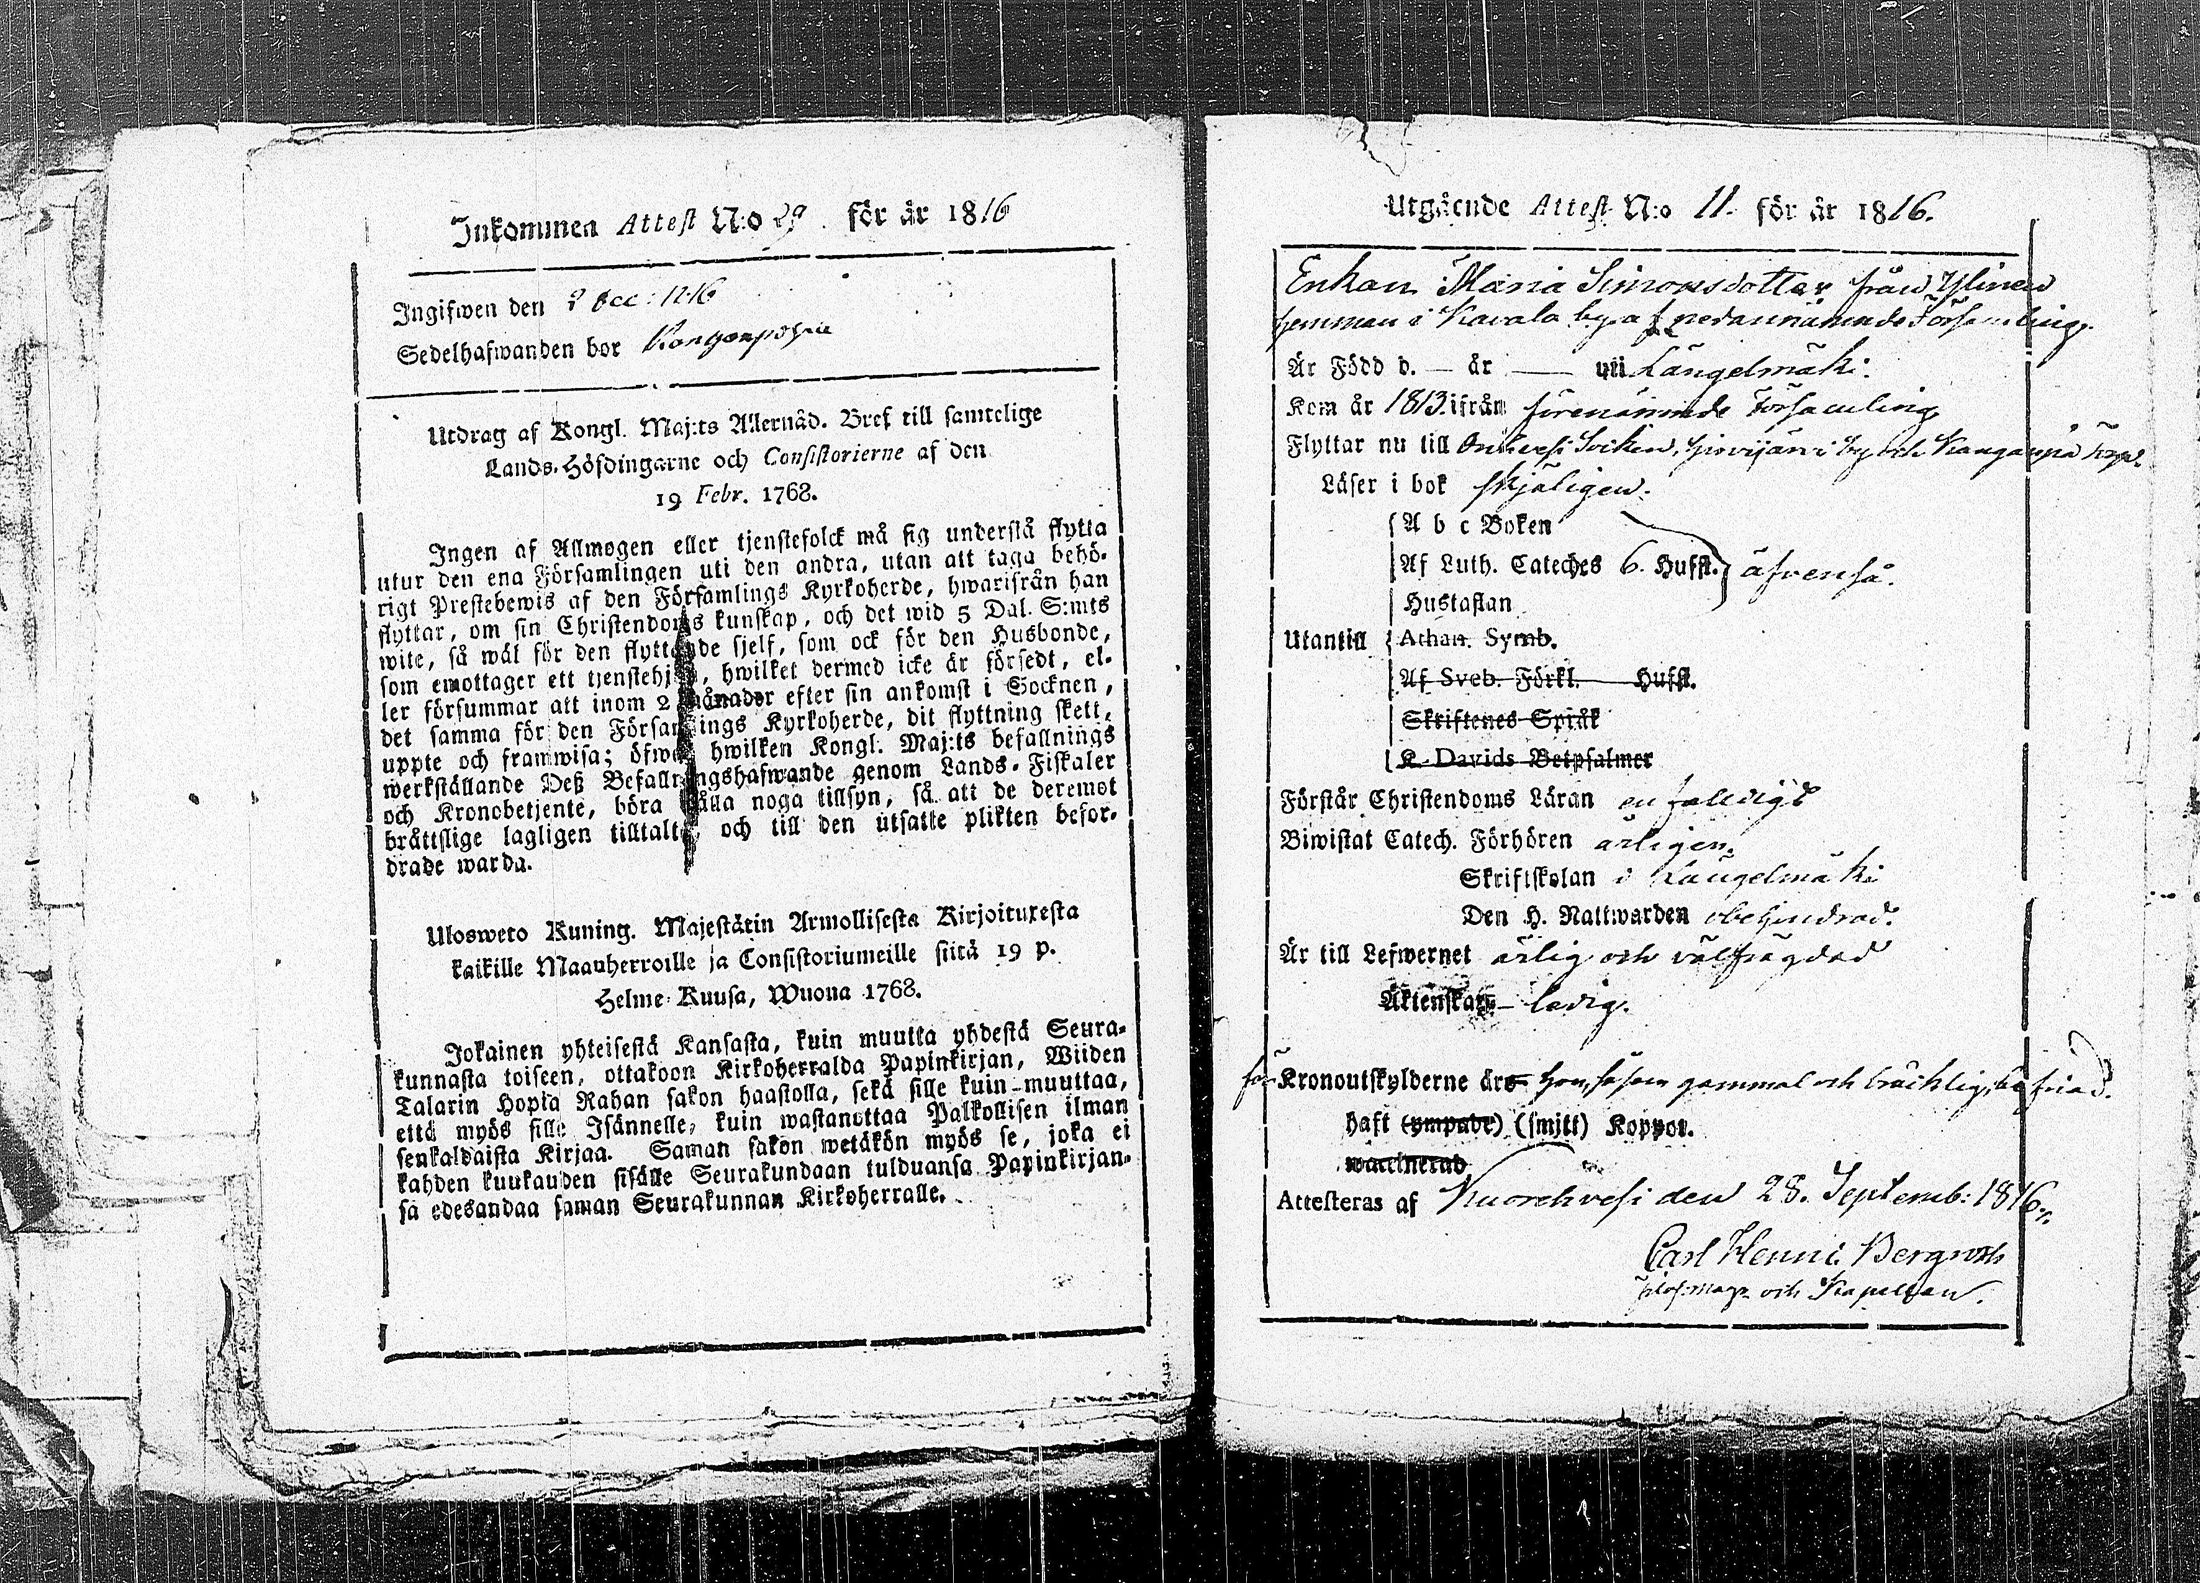 Inkommen Attest N:o 29 för år 1816
Ingifwen den 2 Dec: 1816
Sedelhafwanden bor
Utdrag af Kongl. Maj:ts Allernåd. Bref till samtelige
Lands-Höfdingarne och Consistorierne af den
19 Febr. 1768.
Ingen af Allmogen eller tjenstefolck må sig understå flytta
utur den ena Församlingen uti den andra, utan att taga behö-
rigt Prestebewis af den Församlings Kyrkoherde, hwarifrån han
flyttar, om sin Christendoms kunskap, och det wid 5 Dal. S:mts
wite, så wäl för den flyttande sjelf, som ock för den Husbonde,
som emottager ett tjenstehjon, hwilket dermed icke är försedt, el-
ler försummar att inom 2 månader efter sin ankomst i Socknen,
det samma för den Församlings Kyrkoherde, dit flyttning skett,
uppte och framwisa; öfwer hwilken Kongl. Maj:ts befallnings
werkställande Deß Befallningshafwande genom Lands-Fiskaler
och Kronobetjente, böra hålla noga tillsyn, så att de deremot
bråttslige lagligen tilltalte, och till den utsatte plikten befor-
drade warda.
Ulosweto Kuning. Majestätin Armollisesta Kirjoituxesta
kaikille Maanherroille ja Consistoriumeille siitä 19 p.
Helme-Kuusa, Wuona 1768.
Jokainen yhteisestä Kansasta, kuin muutta yhdestä Seura-
kunnasta toiseen, ottakoon Kirkoherralda Papinkirjan, Wiiden
Talarin Hopia Rahan sakon haastolla, sekä sille kuin muuttaa,
että myös sille Isännelle, kuin wastanottaa Palkollisen ilman
senkaldaista Kirjaa. Saman sakon wetäkön myös se, joka ei
kahden kuukauden sisälle Seurakundaan tulduansa Papinkirjan-
sa edesandaa saman Seurakunnan Kirkoherralle.
Utgående Attest N:o 11. för år 1816.
Enkan Maria Simonsdotter från Ylinen
hemman i Kavala by af nedannämnde Församling.
Är Född d. — år — uti Längelmäki.
Kom år 1813. ifrån förenämnde Församling
Flyttar nu till Orihvesi Socken, Hirvijärvi by och Kangaspä
Läser i bok skjäligen.
A b c Boken
Af Luth. Cateches 6. Hufst. äfvenså.
Hustaflan
Utantill Athan. Symb.
Af Sveb. Förkl. Hufst.
Skriftenes Språk
K. Davids Betpsalmer
Förstår Christendoms Läran enfalldigt
Biwistat Catech. Förhören årligen.
Skriftskolan i Längelmäki
Den H. Nattwarden obehindrad.
Är till Lefwernet ärlig och välfrägdad
Äktenskap — ledig.
för Kronoutskylderne äro hon, såsom gammal och bräcklig, befriad.
haft (ympade) (smitt) Koppor.
waccinerad
Attesteras af Kuorehvesi den 28. Septemb: 1816.
Carl Henric Bergroth
och Kapellan.